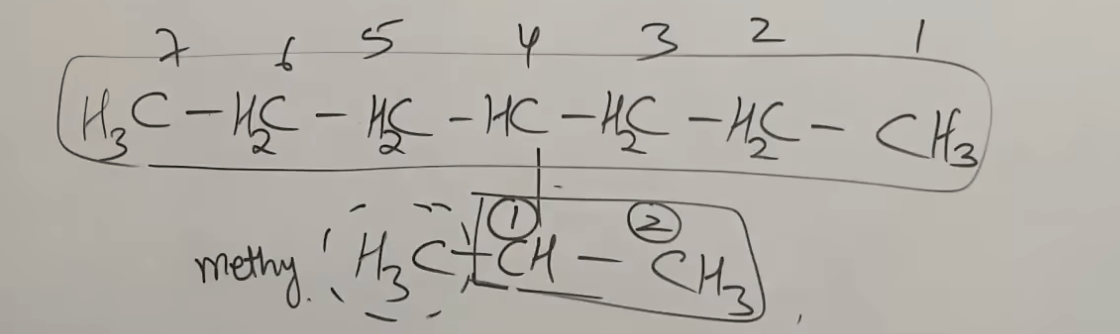 7 6 5 4 3 2 1
H₃C – H₂C – H₂C – HC – H₂C – H₂C – CH₃
① ②
methy. H₃C – CH – CH₃